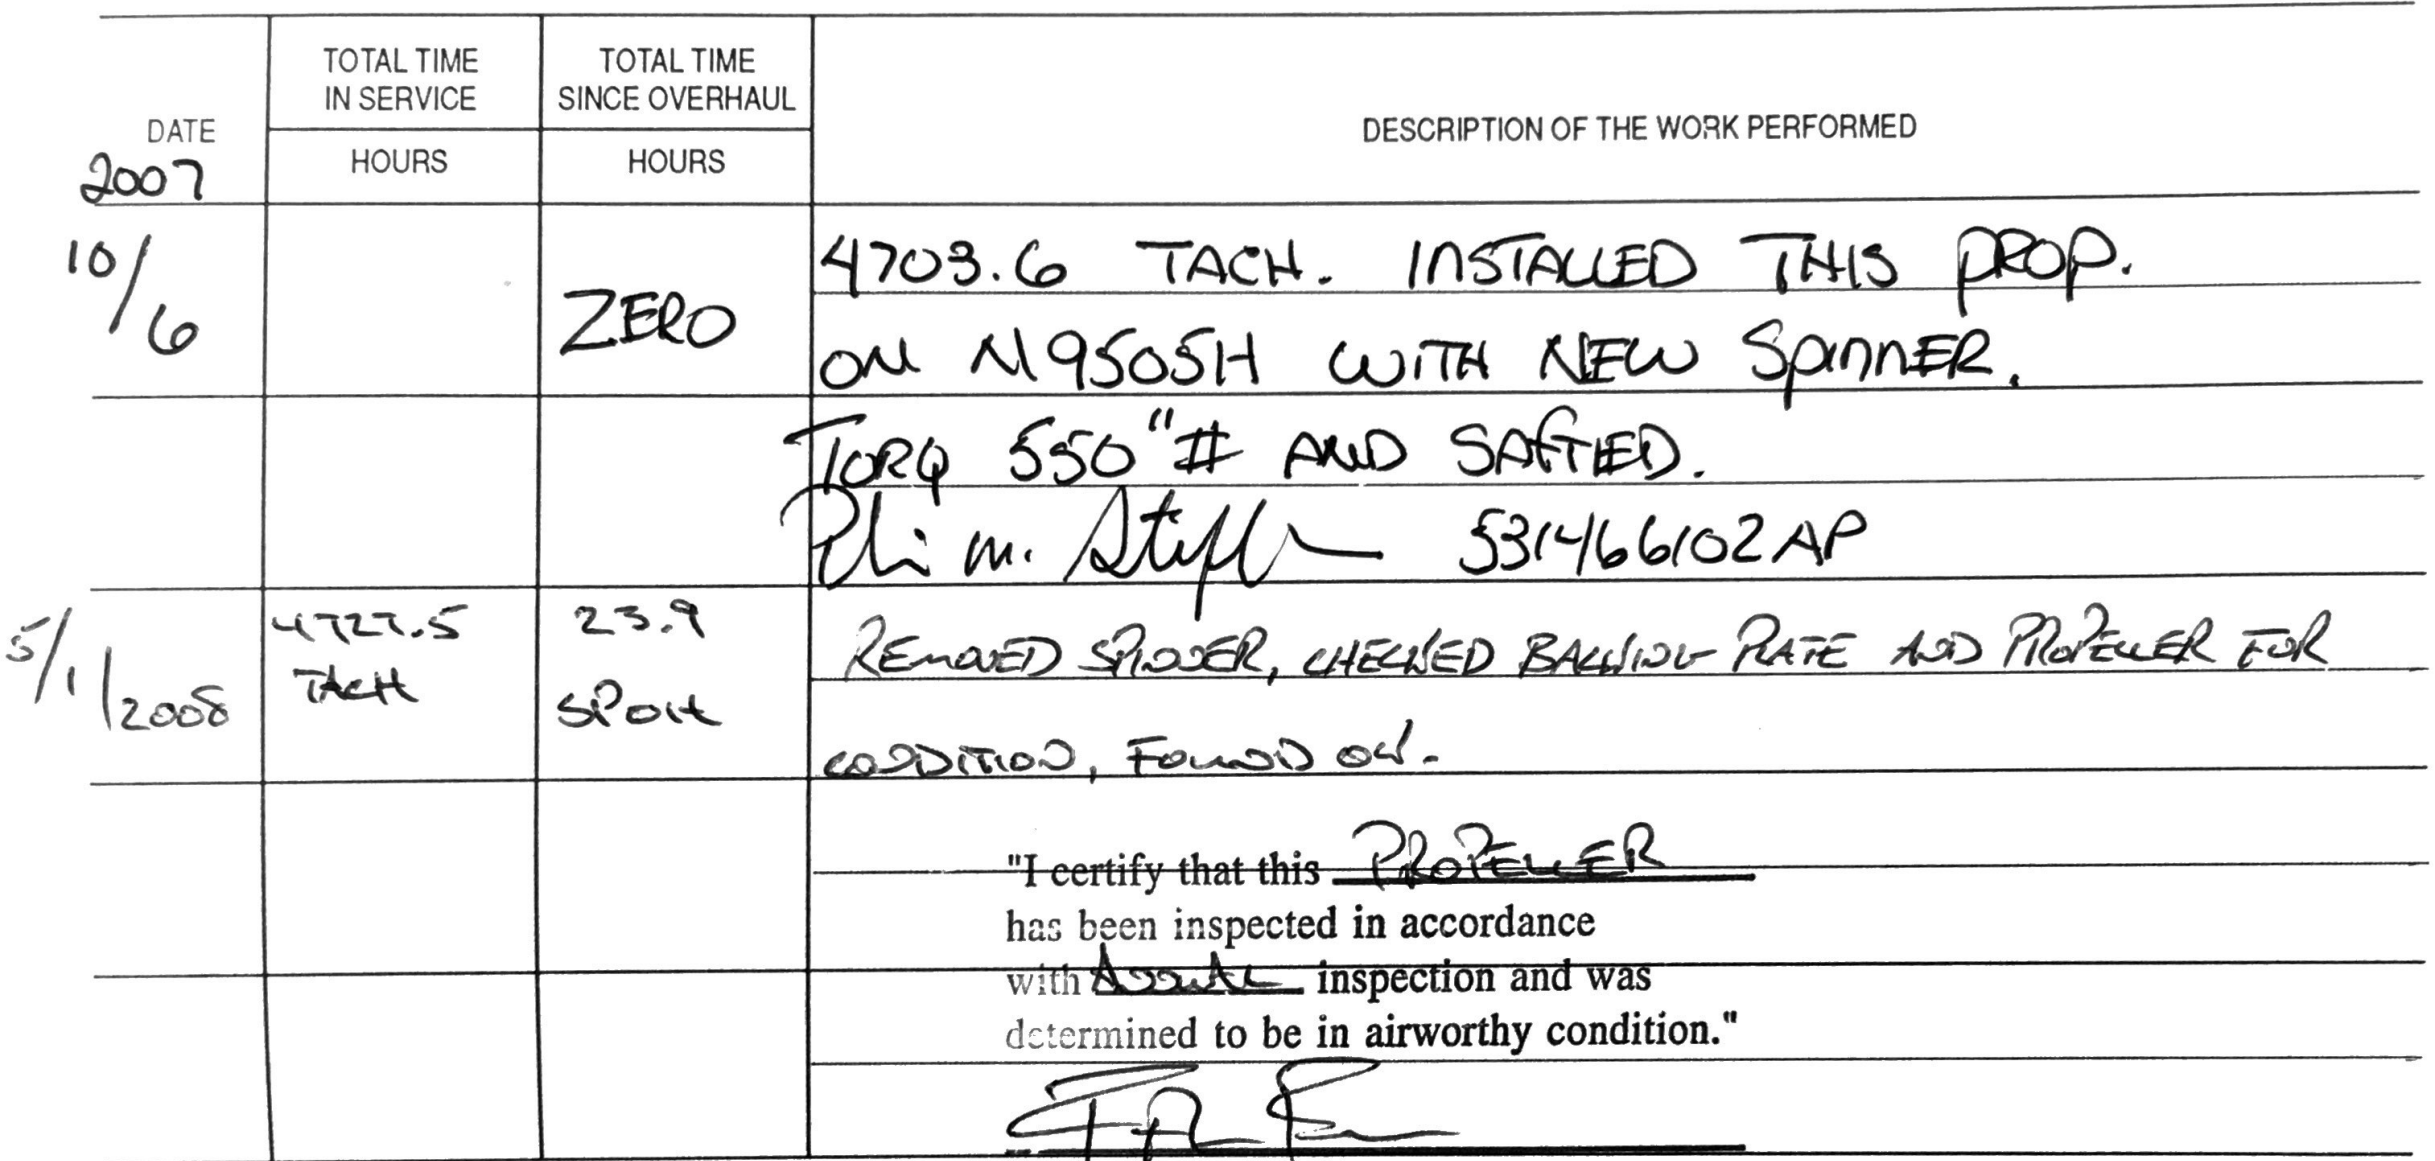 TOTAL TIME IN SERVICE
TOTAL TIME SINCE OVERHAUL
DATE
HOURS
HOURS
DESCRIPTION OF THE WORK PERFORMED
2007
10/6
ZERO
4703.6 TACH. INSTALLED THIS PROP.
ON N9505H WITH NEW SPINNER.
TORQ 550"# AND SAFTIED.
m. 531466102AP
5/1/2008
4727.5 TACH
23.9 SPOH
REMOVED SPINNER, CHECKED BACKING PLATE AND PROPELLER FOR
CONDITION, FOUND OK.
"I certify that this PROPELLER
has been inspected in accordance
with ANNUAL inspection and was
determined to be in airworthy condition."